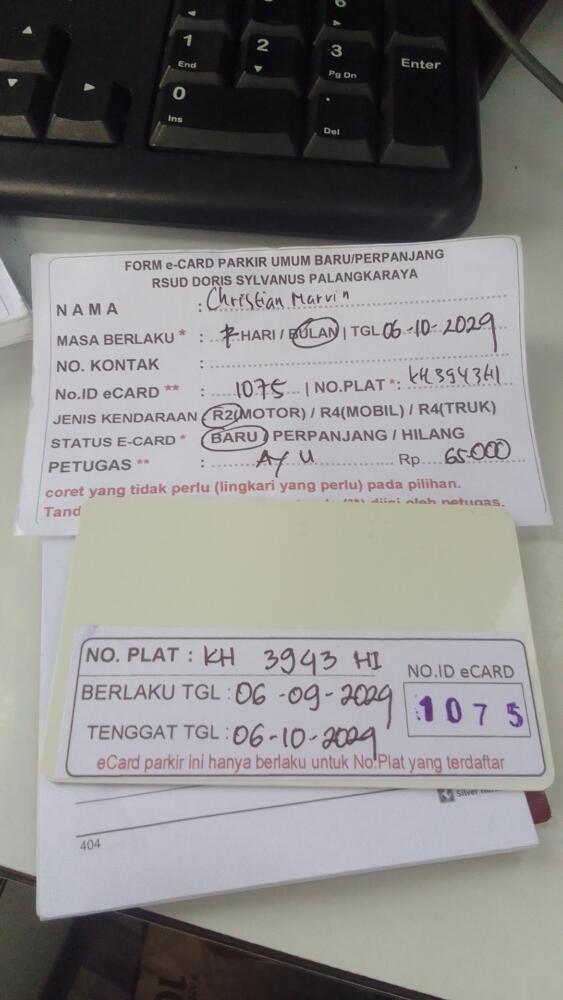 6
1
End
2
3
Pg Dn
Enter
0
Ins
.
Del
FORM e-CARD PARKIR UMUM BARU/PERPANJANG
RSUD DORIS SYLVANUS PALANGKARAYA
NAMA : Christian Marvin
MASA BERLAKU * : 7 HARI / BULAN | TGL 06-10-2029
NO. KONTAK :
No.ID eCARD ** : 1075 | NO.PLAT *: KH3943HI
JENIS KENDARAAN R2(MOTOR) / R4(MOBIL) / R4(TRUK)
STATUS E-CARD * BARU / PERPANJANG / HILANG
PETUGAS ** : AYU Rp. 65.000
coret yang tidak perlu (lingkari yang perlu) pada pilihan.
diisi oleh petugas.
NO. PLAT : KH 3943 HI
NO.ID eCARD
1075
BERLAKU TGL : 06-09-2029
TENGGAT TGL : 06-10-2029
eCard parkir ini hanya berlaku untuk No.Plat yang terdaftar
Silver
404